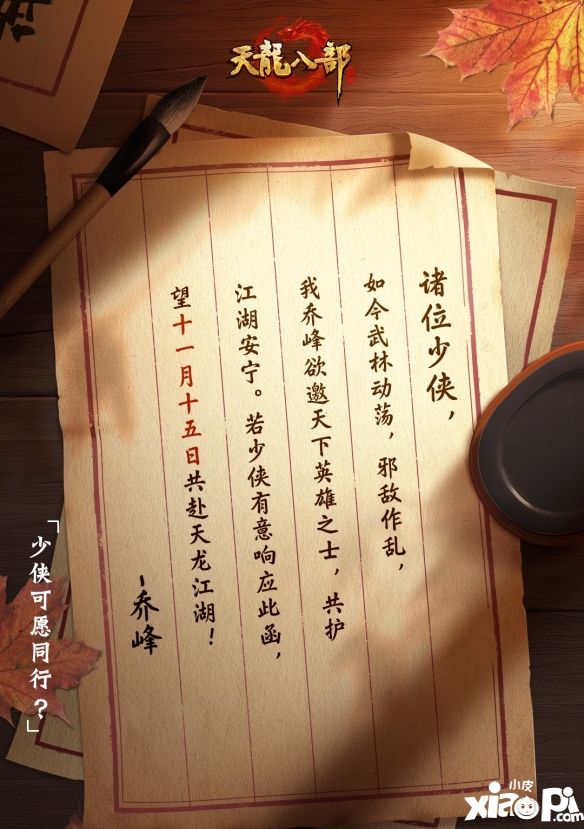 天龍八部
诸位少侠，
如今武林动荡，邪敌作乱，
我乔峰欲邀天下英雄之士，共护
江湖安宁。若少侠有意响应此函，
望十一月十五日共赴天龙江湖！
-乔峰
「少侠可愿同行？」
小皮
xiaopi
.com